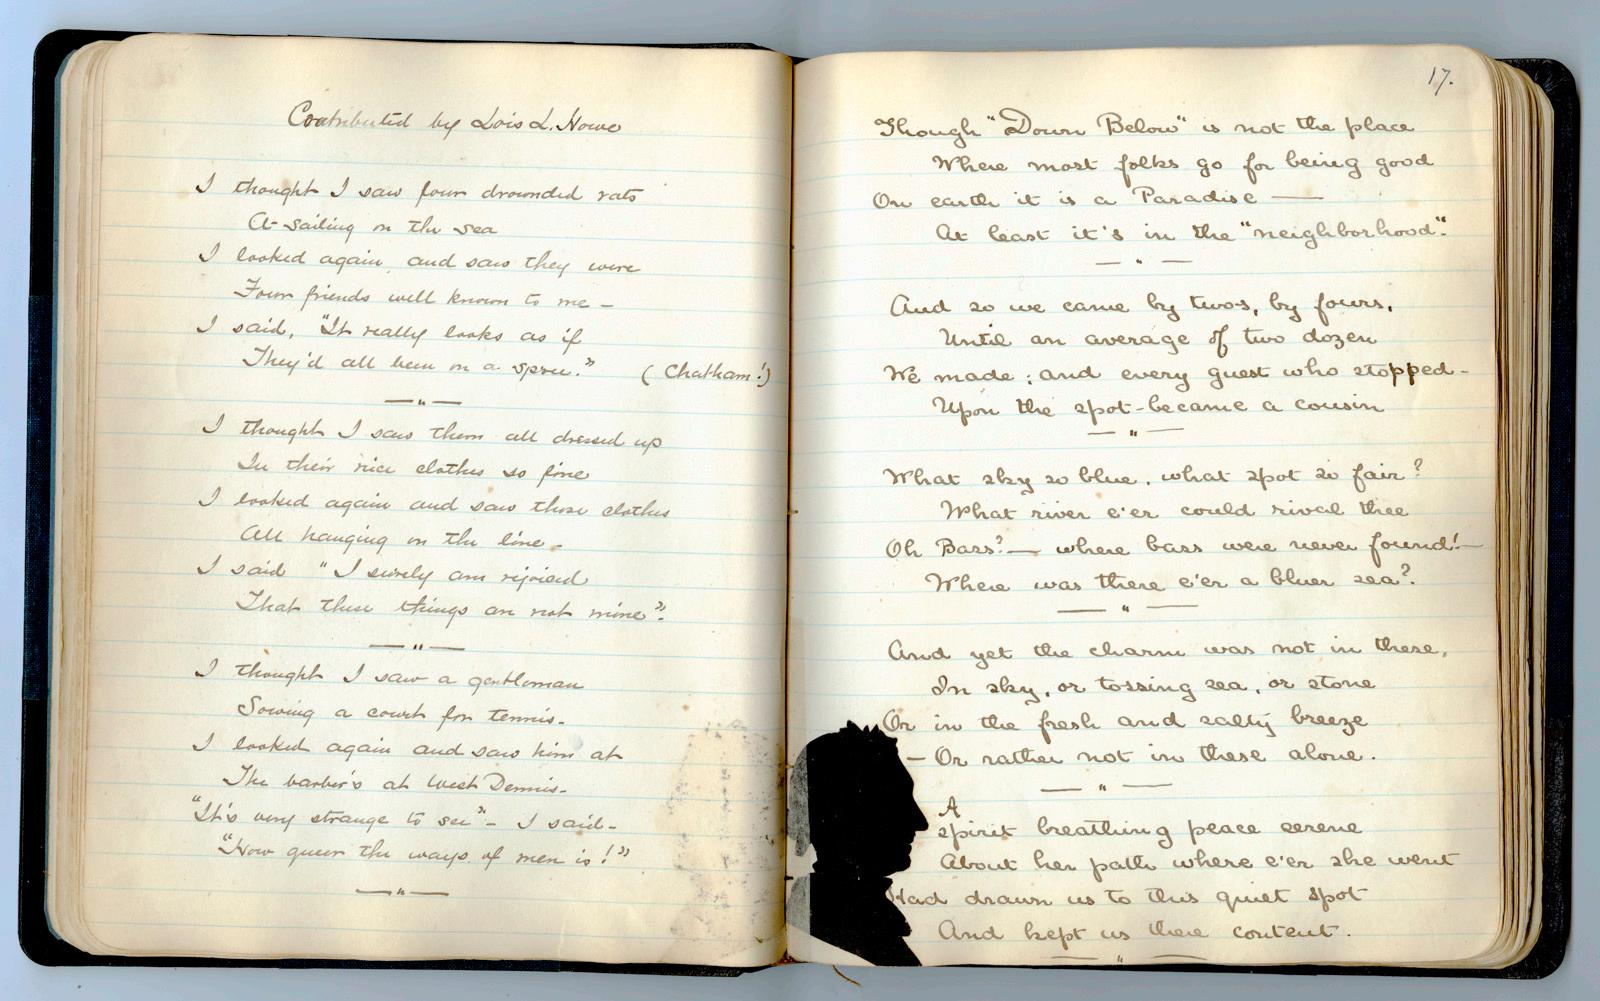 Contributed by Lois L. Howe
I thought I saw four drownded rats
A-sailing on the sea
I looked again and saw they were
Four friends well known to me –
I said, "It really looks as if
They'd all been on a spree." (Chatham!)
—"—
I thought I saw them all dressed up
In their nice clothes so fine
I looked again and saw those clothes
All hanging on the line –
I said "I surely am rejoiced
That these things are not mine".
—"—
I thought I saw a gentleman
Sowing a court for tennis–
I looked again and saw him at
The barber's at West Dennis–
"It's very strange to see" – I said–
"How queer the ways of men is!"
—"—
17.
Though "Down Below" is not the place
Where most folks go for being good
On earth it is a Paradise —
At least it's in the "neighborhood".
—"—
And so we came by twos, by fours,
Until an average of two dozen
We made; and every guest who stopped–
Upon the spot–became a cousin
—"—
What sky so blue, what spot so fair?
What river e'er could rival thee
Oh Bass? — where bass were never found!—
Where was there e'er a bluer sea?
—"—
And yet the charm was not in these,
In sky, or tossing sea, or stone
Or in the fresh and salty breeze
– Or rather not in these alone.
—"—
A
spirit breathing peace serene
About her path where e'er she went
Had drawn us to this quiet spot
And kept us there content.
—"—